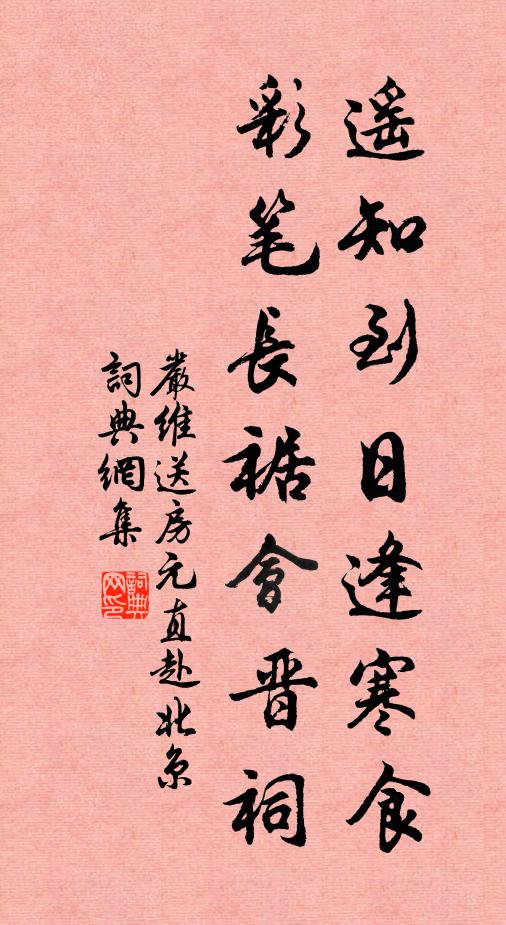 遥知到日逢寒食
彩笔長裾會晋祠
嚴維送房元直赴北京
詞典網集
詞典网印